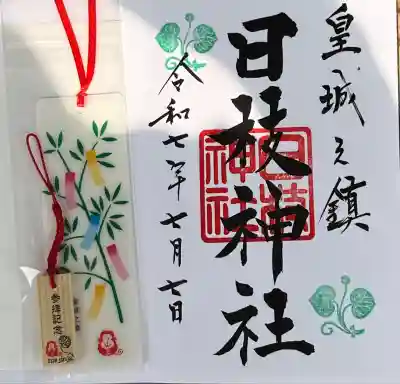 皇城之鎮
日枝神社
令和七年七月七日
日枝神社